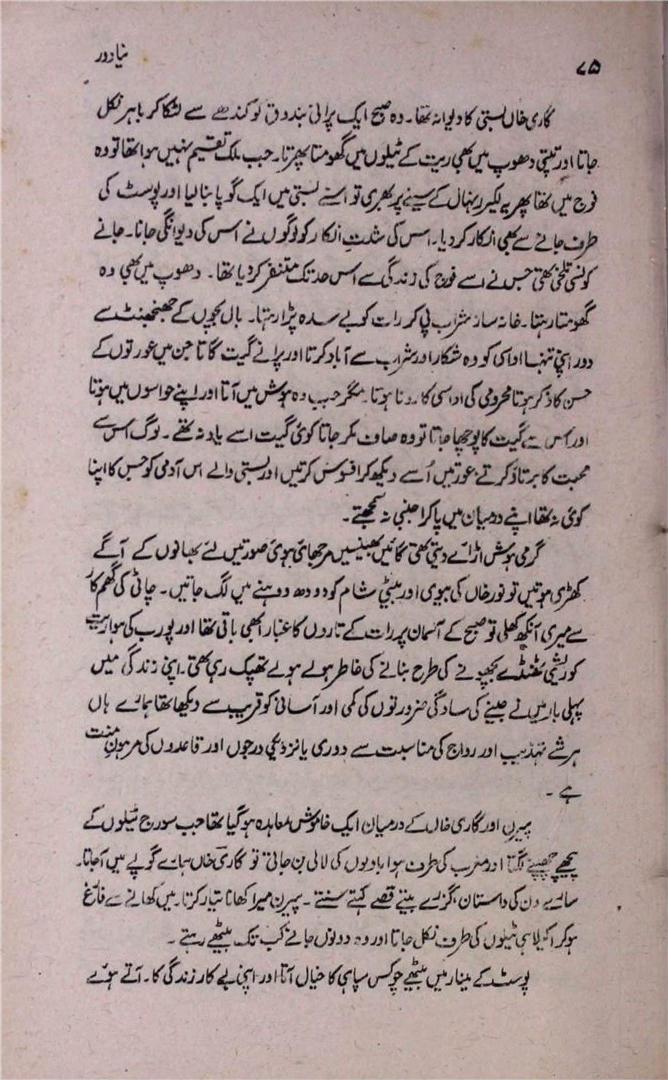 ۷۵
نیا دور
گاری خاں بستی کا دیوانہ تھا۔ وہ صبح ایک پرانی بندوق کو کندھے سے لٹکا کر باہر نکل
جاتا اور تپتی دھوپ میں بھی ریت کے ٹیلوں میں گھومتا پھرتا۔ جب ملک تقسیم نہیں ہوا تھا تو وہ
فوج میں تھا پھر یہ لکیر ریتھال کے سینے پر کھری تو اسنے بستی میں ایک گوپا بنا لیا اور پوسٹ کی
طرف جانے سے بھی انکار کر دیا۔ اس کی شدتِ انکار کو لوگوں نے اس کی دیوانگی جانا۔ جانے
کونسی تلخی تھی جس نے اسے فوج کی زندگی سے اس حد تک متنفر کر دیا تھا۔ دھوپ میں بھی وہ
گھومتا رہتا۔ خانہ ساز شراب پی کر رات کو بے سدھ پڑا رہتا۔ بال بچوں کے جھنجھنٹ سے
دور اپنی تنہا اداسی کو وہ شکار اور شراب سے آباد کرتا اور پرانے گیت گاتا جن میں عورتوں کے
حسن کا ذکر ہوتا محرومی کی اداسی کا رونا ہوتا۔ مگر جب وہ ہوش میں آتا اور اپنے حواسوں میں ہوتا
اور اس سے گیت کا پوچھا جاتا تو وہ صاف مکر جاتا کوئی گیت اسے یاد نہ تھے۔ لوگ اس سے
محبت کا برتاؤ کرتے عورتیں اُسے دیکھ کر افسوس کرتیں اور بستی والے اس آدمی کو جس کا اپنا
کوئی نہ تھا اپنے درمیان میں پا کر اجنبی نہ سمجھتے۔
گرمی ہوش اڑائے دیتی تھی گائیں بھینسیں مرجھائی ہوئی صورتیں لئے بھانوں کے آگے
کھڑی ہوتیں تو نور خاں کی بیوی اور بیٹی شام کو دودھ دوہنے میں لگ جاتیں۔ چاٹی کی گھم کار
سے میری آنکھ کھلی تو صبح کے آسمان پر رات کے تاروں کا غبار ابھی باقی تھا اور پورب کی ہوا ریت
کو ریشمی ٹھنڈے بچھونے کی طرح بنانے کی خاطر ہولے ہولے تھپک رہی تھی۔ اپنی زندگی میں
پہلی بار میں نے جینے کی سادگی ضرورتوں کی کمی اور آسانی کو قریب سے دیکھا تھا ہمارے ہاں
ہر شے تہذیب اور رواج کی مناسبت سے دوری یا نزدیکی درجوں اور قاعدوں کی مرہونِ منت
ہے۔
پیرن اور گاری خاں کے درمیان ایک خاموش معاہدہ ہو گیا تھا جب سورج ٹیلوں کے
پیچھے چھپنے لگتا اور مغرب کی طرف ہوا بادلوں کی لالی بن جاتی تو گاری خاں ہمارے گوپے میں آجاتا۔
سارے دن کی داستان، گزرے بیتے قصے کہتے سنتے۔ پیرن میرا کھانا تیار کرتا۔ میں کھانے سے فارغ
ہو کر اکیلا ہی ٹیلوں کی طرف نکل جاتا اور وہ دونوں جانے کب تک بیٹھے رہتے۔
پوسٹ کے مینار میں بیٹھے چوکس سپاہی کا خیال آتا اور اپنی بے کار زندگی کا۔ آتے ہوئے